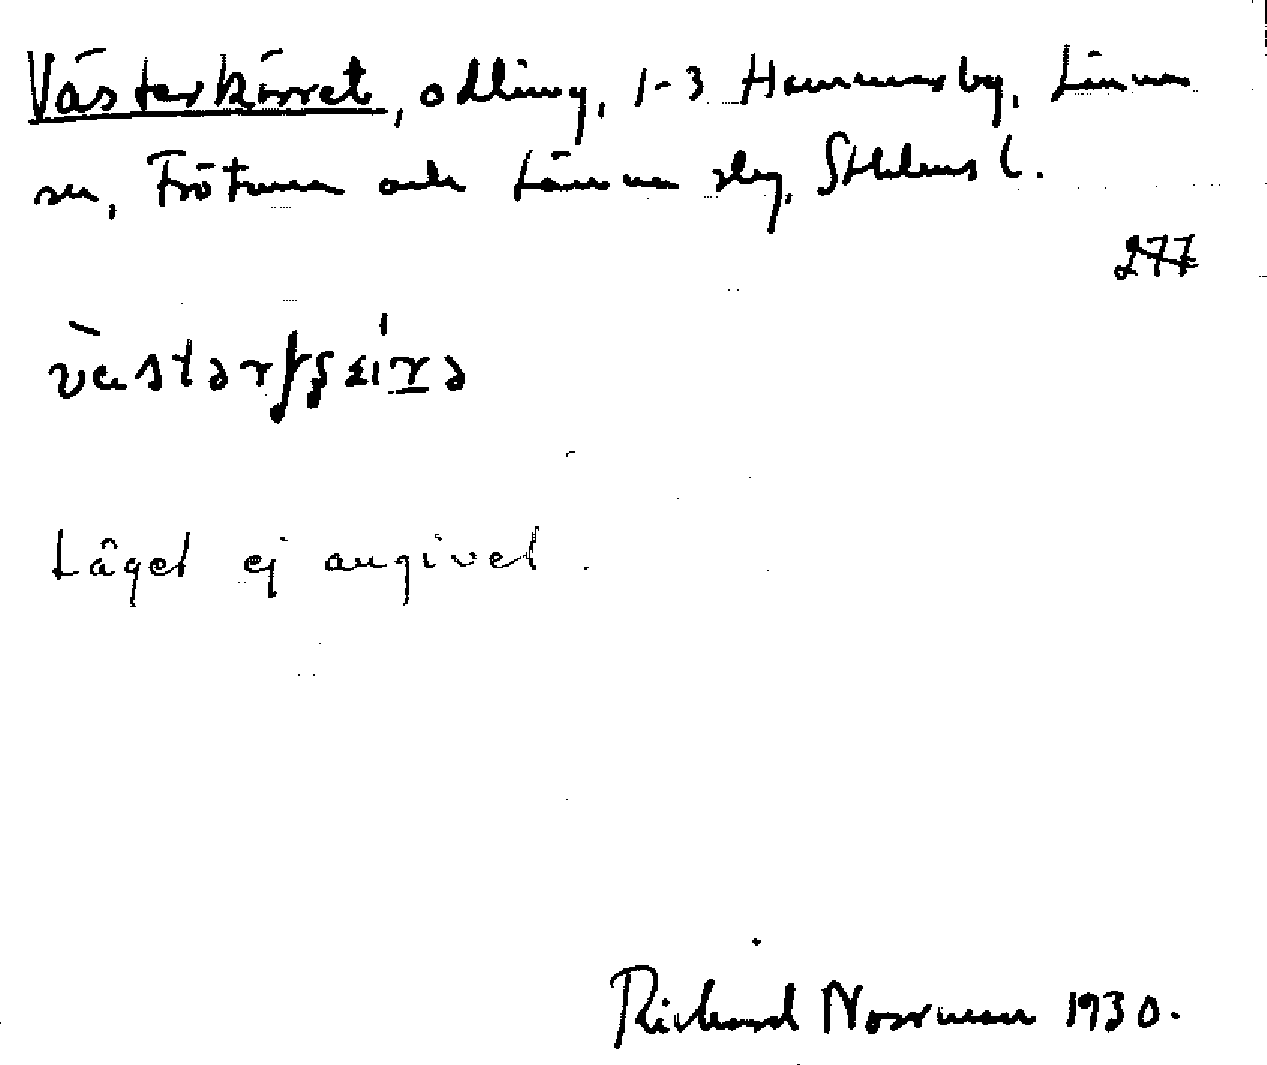 Västerkärret, odling, 1-3 Hammarby, Länna
sn, Frötuna och Länna slg, Sthlms l.
277
Läget ej angivet.
Richard Norrman 1930.